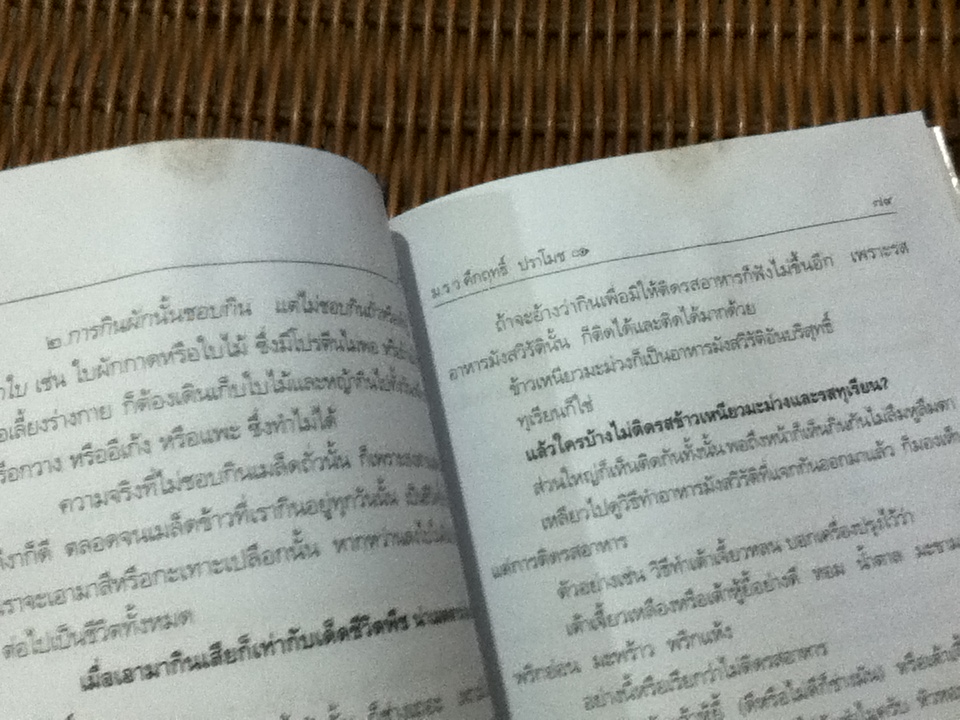 ๒.การกินผักนั้นชอบกิน แต่ไม่ชอบกิน
ใบ เช่น ใบผักกาดหรือใบไม้ ซึ่งมีโปรตีนไม่พอ
เลี้ยงร่างกาย ก็ต้องเดินเก็บใบไม้และหญ้ากิน
กวาง หรืออีเก้ง หรือแพะ ซึ่งทำไม่ได้
ความจริงที่ไม่ชอบกินเมล็ดถั่วนั้น ก็เพราะ
งาก็ดี ตลอดจนเมล็ดข้าวที่เรากินอยู่ทุกวันนั้น
เราจะเอามาสีหรือกะเทาะเปลือกนั้น หาก
ต่อไปเป็นชีวิตทั้งหมด
เมื่อเอามากินเสียก็เท่ากับเด็ดชีวิตพืช
ม.ร.ว คึกฤทธิ์ ปราโมช
๗๙
ถ้าจะอ้างว่ากินเพื่อมิให้ติดรสอาหารก็ฟังไม่ขึ้นอีก เพราะรส
อาหารมังสวิรัตินั้น ก็ติดได้และติดได้มากด้วย
ข้าวเหนียวมะม่วงก็เป็นอาหารมังสวิรัติอันบริสุทธิ์
ทุเรียนก็ใช่
แล้วใครบ้างไม่ติดรสข้าวเหนียวมะม่วงและรสทุเรียน?
ส่วนใหญ่ก็เห็นติดกันทั้งนั้น พอถึงหน้าก็เห็นกินกันไม่ลืมหูลืมตา
เหลียวไปดูวิธีทำอาหารมังสวิรัติที่แจกกันออกมาแล้ว ก็มองเห็น
แต่การติดรสอาหาร
ตัวอย่างเช่น วิธีทำเต้าเจี้ยวหลน บอกเครื่องปรุงไว้ว่า
เต้าเจี้ยวเหลืองหรือเต้าหู้ยี้อย่างดี หอม น้ำตาล มะขาม
พริกอ่อน มะพร้าว พริกแห้ง
อย่างนี้หรือเรียกว่าไม่ติดรสอาหาร
(ดีหรือไม่ดีก็ช่างมัน)